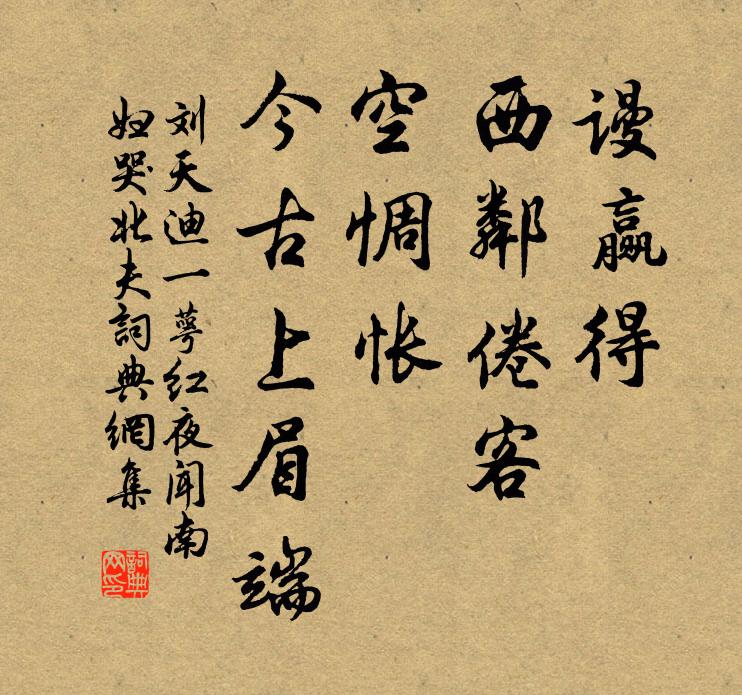 谩赢得
西鄰倦客
空惆怅
今古上眉端
刘天迪一萼红夜闻南
妇哭北夫詞典網集
詞典
网印